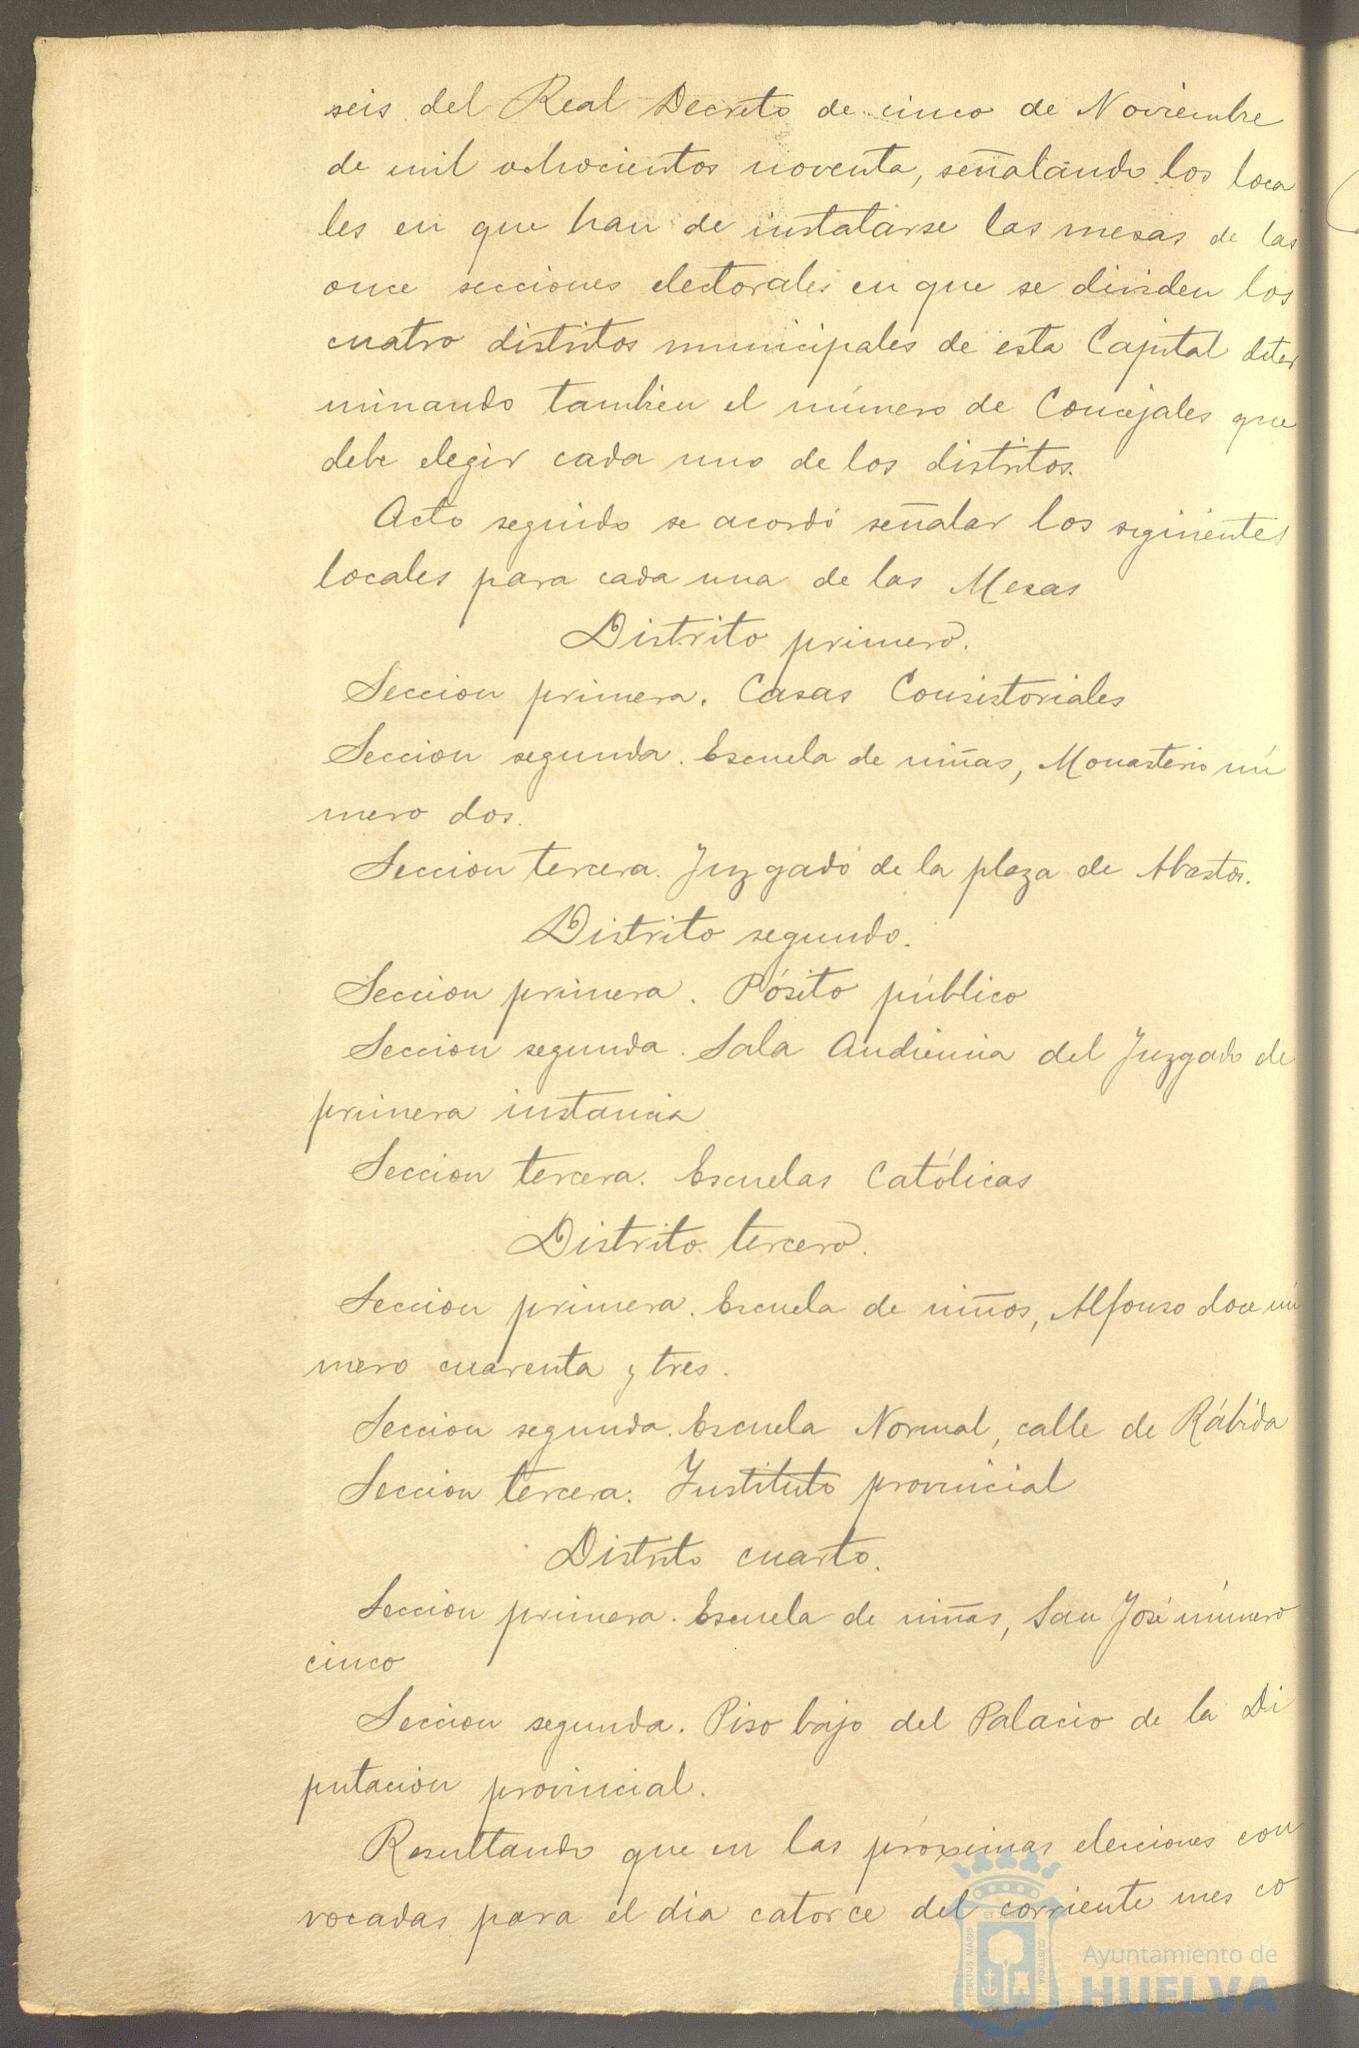 seis del Real Decreto de cinco de Noviembre
de mil ochocientos noventa, señalando los loca
les en que han de instalarse las mesas de las
once secciones electorales en que se dividen los
cuatro distritos municipales de esta Capital deter
minando tambien el número de Concejales que
debe elegir cada uno de los distritos.
Acto seguido se acordó señalar los siguientes
locales para cada una de las Mesas
Distrito primero.
Seccion primera. Casas Consistoriales
Seccion segunda. Escuela de niñas, Monasterio nú
mero dos.
Seccion tercera. Juzgado de la plaza de Abastos.
Distrito segundo.
Seccion primera. Pósito público
Seccion segunda. Sala Audiencia del Juzgado de
primera instancia
Seccion tercera. Escuelas Católicas
Distrito tercero.
Seccion primera. Escuela de niños, Alfonso doce nú
mero cuarenta y tres.
Seccion segunda. Escuela Normal, calle de Rábida
Seccion tercera. Instituto provincial
Distrito cuarto.
Seccion primera. Escuela de niñas, San José número
cinco
Seccion segunda. Piso bajo del Palacio de la Di
putacion provincial.
Resultando que en las próximas elecciones con
vocadas para el dia catorce del corriente mes co
PORTUS MARIS CUSTODIA
Ayuntamiento de
HUELVA